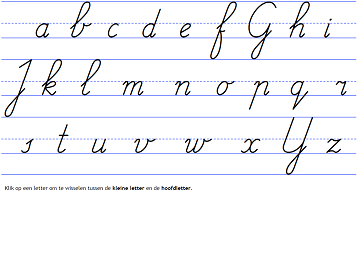 a b c d e f G h i
J k l m n o p q r
s t u v w x Y z
Klik op een letter om te wisselen tussen de kleine letter en de hoofdletter.